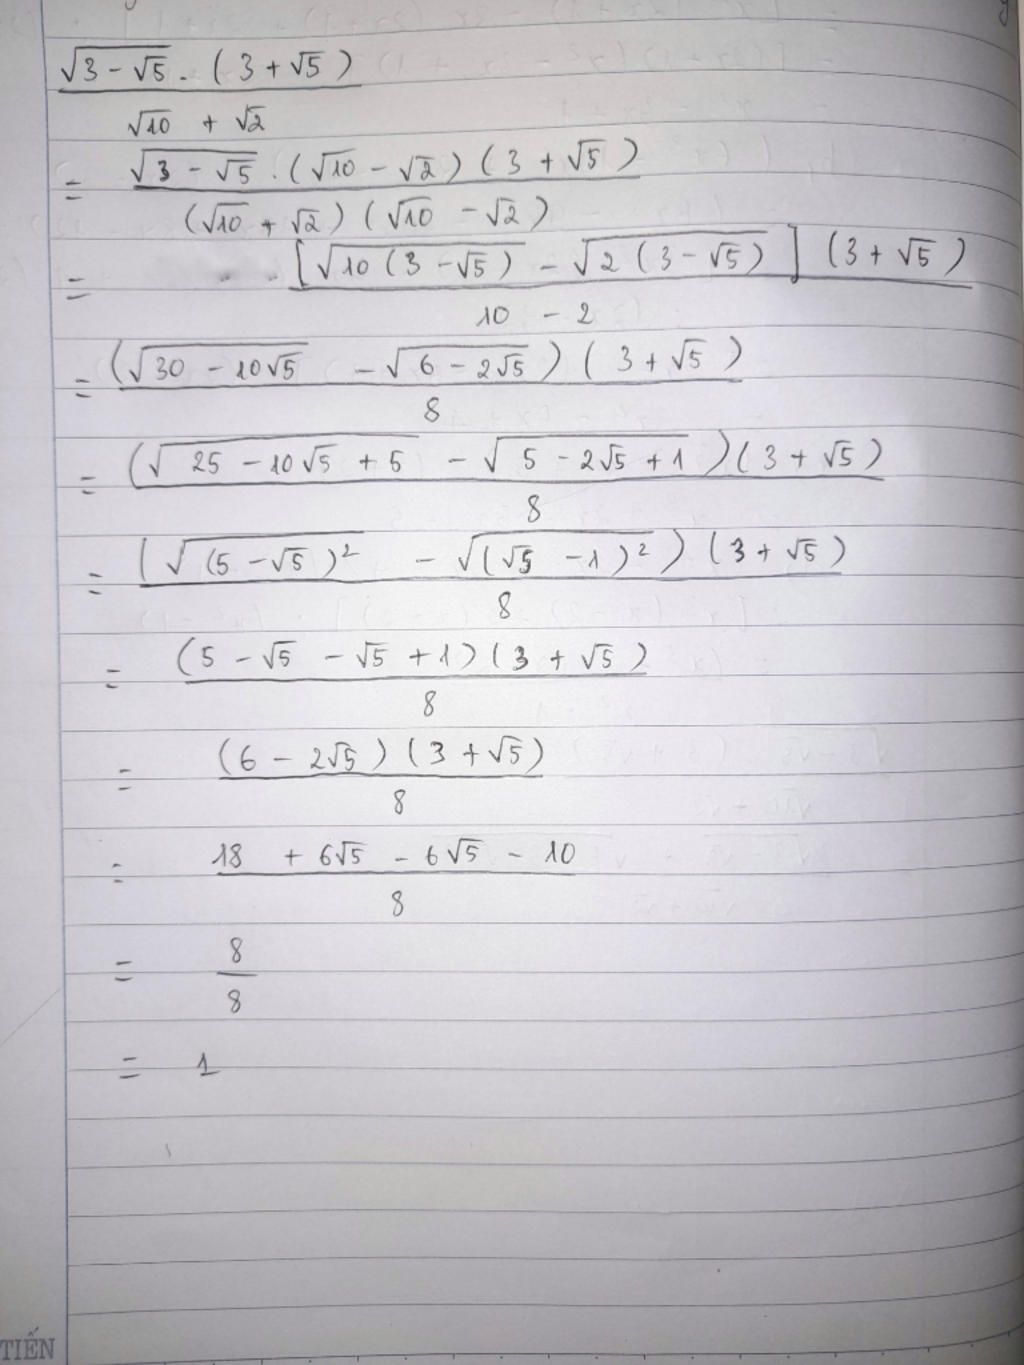 √(3 - √5) · (3 + √5)
√10 + √2
= √(3 - √5) · (√10 - √2) (3 + √5)
(√10 + √2) (√10 - √2)
= [√(10 (3 - √5)) - √(2 (3 - √5))] (3 + √5)
10 - 2
= (√(30 - 10√5) - √(6 - 2√5)) (3 + √5)
8
= (√(25 - 10√5 + 5) - √(5 - 2√5 + 1)) (3 + √5)
8
= (√((5 - √5)²) - √((√5 - 1)²)) (3 + √5)
8
= (5 - √5 - √5 + 1) (3 + √5)
8
= (6 - 2√5) (3 + √5)
8
= 18 + 6√5 - 6√5 - 10
8
= 8
8
= 1
TIẾN